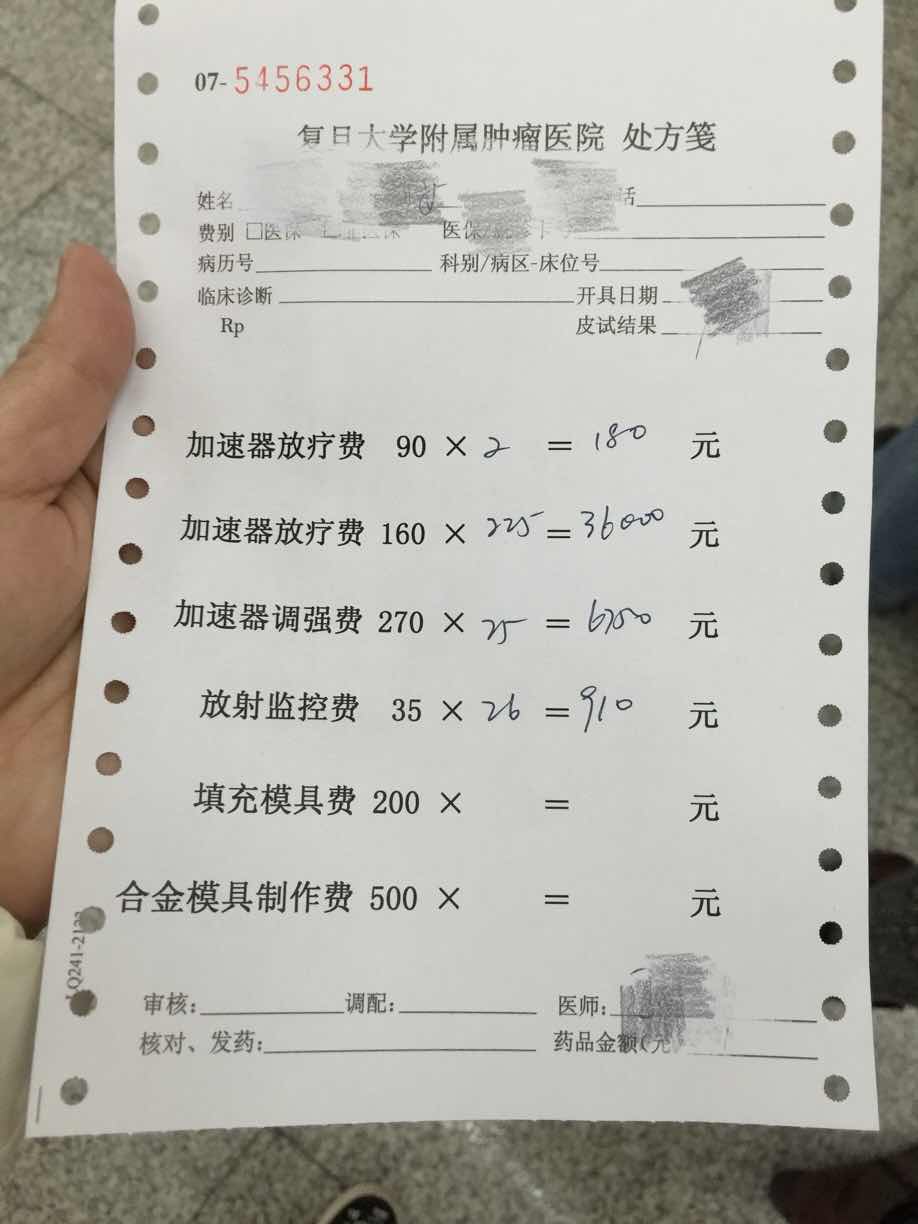 07-5456331
复旦大学附属肿瘤医院 处方笺
姓名 话
费别 □医保 医保
病历号 科别/病区-床位号
临床诊断 开具日期
Rp 皮试结果
加速器放疗费 90 × 2 = 180 元
加速器放疗费 160 × 225 = 36000 元
加速器调强费 270 × 25 = 6750 元
放射监控费 35 × 26 = 910 元
填充模具费 200 × = 元
合金模具制作费 500 × = 元
审核: 调配: 医师:
核对、发药: 药品金额(元